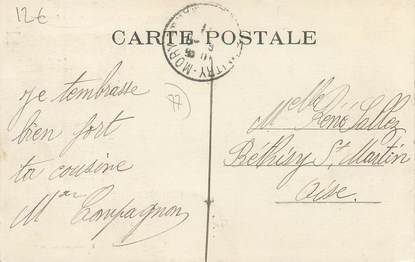 12€
CARTE POSTALE
TRY-MORY
je t'embrasse
bien fort
ta cousine
Mme Compagnon
Melle Réné Sallez
Béthisy St. Martin
Oise.